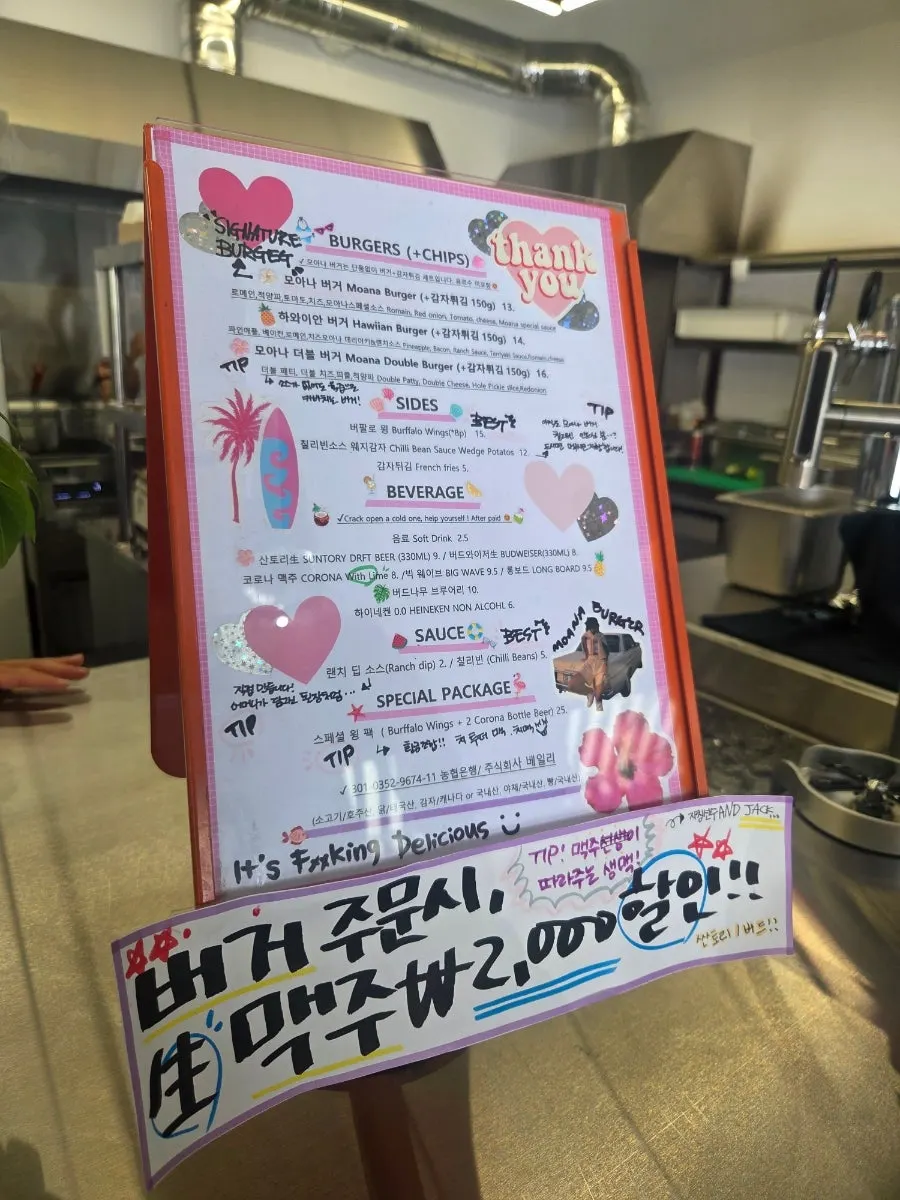 SIGNATURE
BURGEG
BURGERS (+CHIPS)
thank
you
✓ 모아나 버거는 단품없이 버거+감자튀김 세트입니다.
모아나 버거 Moana Burger (+감자튀김 150g) 13.
로메인,적양파,토마토,치즈,모아나스페셜소스 Romain, Red onion, Tomato, cheese, Moana special sauce
하와이안 버거 Hawiian Burger (+감자튀김 150g) 14.
파인애플, 베이컨,로메인,치즈모아나 데리야끼&랜치소스 Pineapple, Bacon, Ranch Sauce, Terriyaki Sauce,Romain,cheese
모아나 더블 버거 Moana Double Burger (+감자튀김 150g) 16.
더블 패티, 더블 치즈,피클,적양파 Double Patty, Double Cheese, Hole Pickle slice,Redonion
TIP
SIDES
BEST
TIP
버팔로 윙 Burffalo Wings(*8p) 15.
칠리빈소스 웨지감자 Chilli Bean Sauce Wedge Potatos 12.
감자튀김 French fries 5.
BEVERAGE
✓Crack open a cold one, help yourself ! After paid
음료 Soft Drink 2.5
산토리生 SUNTORY DRFT BEER (330ML) 9. / 버드와이저生 BUDWEISER(330ML) 8.
코로나 맥주 CORONA With Lime 8. /빅 웨이브 BIG WAVE 9.5 / 롱보드 LONG BOARD 9.5
버드나무 브루어리 10.
하이네켄 0.0 HEINEKEN NON ALCOHL 6.
SAUCE
BEST
MOANA BURGER
랜치 딥 소스(Ranch dip) 2. / 칠리빈 (Chilli Beans) 5.
직접 만듭니다!
TIP
SPECIAL PACKAGE
스페셜 윙 팩 ( Burffalo Wings + 2 Corona Bottle Beer) 25.
TIP
✓ 301-0352-9674-11 농협은행/ 주식회사 베일리
(소고기/호주산, 닭/태국산, 감자/캐나다 or 국내산, 야채/국내산, 빵/국내산,
It's Fxxking Delicious
TIP! 맥주선생이
따라주는 생맥!
AND JACK...
버거 주문시,
生 맥주 ₩2,000 할인!!
싼토리 / 버드!?